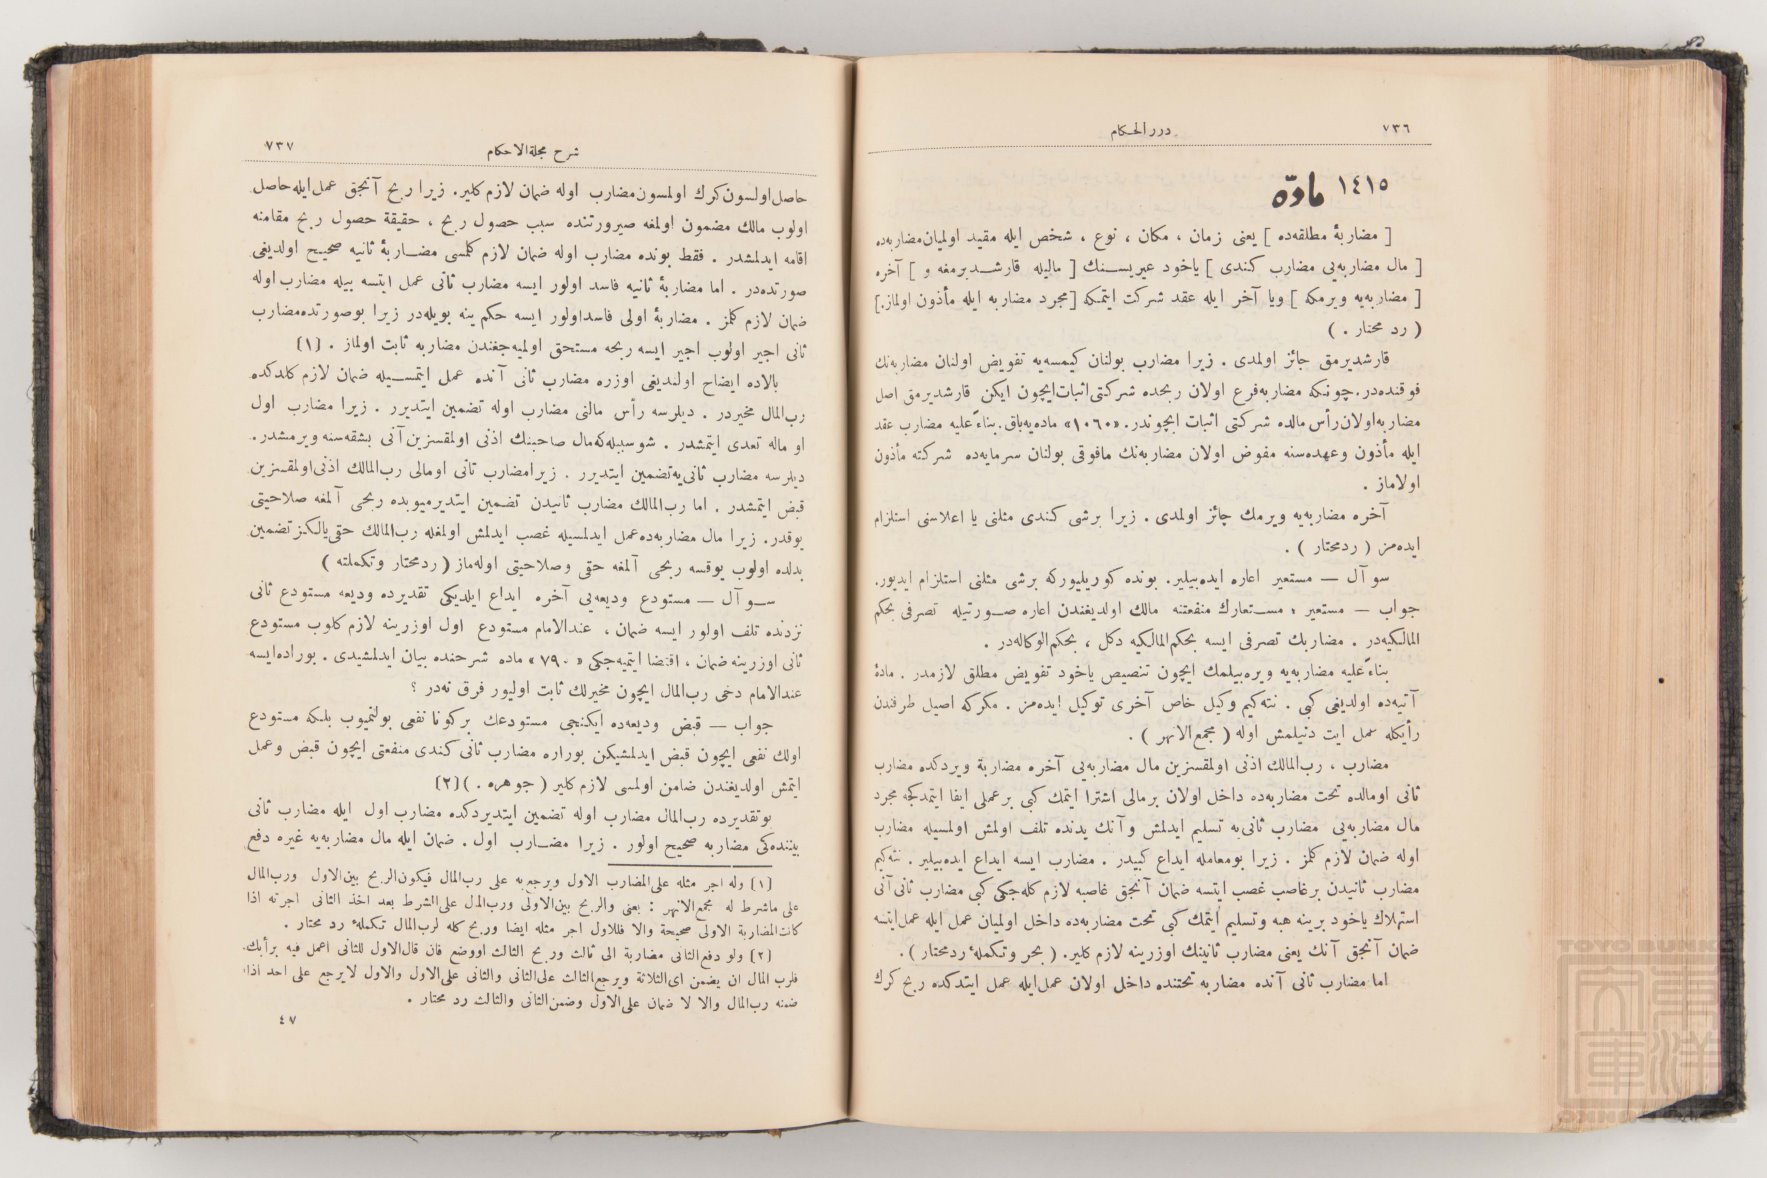 ٧٣٦
درر الحكام
١٤١٥ مادّه
[ مضاربۀ مطلقه‌ده ] يعنى زمان ، مكان ، نوع ، شخص ايله مقيد اولميان مضاربه‌ده
[ مال مضاربه‌يى مضارب كندى ] ياخود غيريسـنك [ ماليله قارشـديرمغه و ] آخره
[ مضاربه‌يه ويرمكه ] ويا آخر ايله عقد شركت ايتمكه [ مجرد مضاربه ايله مأذون اولماز.]
( رد محتار . )
قارشديرمق جائز اولمدى . زيرا مضارب بولنان كيمسه‌يه تفويض اولنان مضاربه‌نك
فوقنده‌در. چونكه مضاربه فرع اولان ربحده شركتى اثبات ايچون ايكن قارشديرمق اصل
مضاربه اولان رأس مالده شركتى اثبات ايچوندر. «١٠٦٠» ماده‌يه باق. بناءً عليه مضارب عقد
ايله مأذون وعهده‌سنه مفوض اولان مضاربه‌نك مافوقى بولنان سرمايه‌ده شركته مأذون
اولاماز .
آخره مضاربه‌يه ويرمك جائز اولمدى . زيرا برشى كندى مثلنى يا اعلاسنى استلزام
ايده‌مز ( ردمحتار ) .
سو آل — مستعير اعاره ايده‌بيلير. بونده كوريليوركه برشى مثلنى استلزام ايديور.
جواب — مستعير ، مسـتعارك منفعتنه مالك اولديغندن اعاره صـورتيله تصرفى بحكم
المالكيه‌در . مضاربك تصرفى ايسه بحكم المالكيه دكل ، بحكم الوكاله‌در .
بناءً عليه مضاربه‌يه ويره‌بيلمك ايچون تنصيص ياخود تفويض مطلق لازمدر . مادۀ
آتيه‌ده اولديغى كبى . نته‌كيم وكيل خاص آخرى توكيل ايده‌مز . مكركه اصيل طرفندن
رأيكله عمل ايت دنيلمش اوله ( مجمع الانهر ) .
مضارب ، رب‌المالك اذنى اولمقسزين مال مضاربه‌يى آخره مضاربة ويردكده مضارب
ثانى اومالده تحت مضاربه‌ده داخل اولان برمالى اشترا ايتمك كبى برعملى ايفا ايتمدكجه مجرد
مال مضاربه‌يى مضارب ثانى‌به تسليم ايدلمش و آنك يدنده تلف اولمش اولمسيله مضارب
اوله ضمان لازم كلمز . زيرا بومعامله ايداع كبيدر . مضارب ايسه ايداع ايده‌بيلير . نته‌كيم
مضارب ثانيدن برغاصب غصب ايتسه ضمان آنجق غاصبه لازم كله‌جكى كبى مضارب ثانى آنى
استهلاك ياخود برينه هبه وتسليم ايتمك كبى تحت مضاربه‌ده داخل اولميان عمل ايله عمل ايتسه
ضمان آنجق آنك يعنى مضارب ثانينك اوزرينه لازم كلير. ( بحر وتكملۀ ردمحتار ) .
اما مضارب ثانى آنده مضاربه تحتنده داخل اولان عمل ايله عمل ايتدكده ربح كرك
٧٣٧
شرح مجلة الاحكام
حاصل اولسون كرك اولمسون مضارب اوله ضمان لازم كلير. زيرا ربح آنجق عمل ايله حاصل
اولوب مالك مضمون اولمغه صيرورتنده سبب حصول ربح ، حقيقة حصول ربح مقامنه
اقامه ايدلمشدر . فقط بونده مضارب اوله ضمان لازم كلمسى مضـاربۀ ثانيه صحيح اولديغى
صورتده‌در . اما مضاربۀ ثانيه فاسد اولور ايسه مضارب ثانى عمل ايتسه بيله مضارب اوله
ضمان لازم كلمز . مضاربۀ اولى فاسد اولور ايسه حكم ينه بويله‌در زيرا بوصورتده مضارب
ثانى اجير اولوب اجير ايسه ربحه مستحق اولميه‌جغندن مضاربه ثابت اولماز . (١)
بالاده ايضاح اولنديغى اوزره مضارب ثانى آنده عمل ايتمسـيله ضمان لازم كلدكده
رب‌المال مخيردر . ديلرسه رأس مالنى مضارب اوله تضمين ايتديرر . زيرا مضارب اول
او ماله تعدى ايتمشدر . شو سببله‌كه مال صاحبنك اذنى اولمقسزين آنى بشقه‌سنه ويرمشدر.
ديلرسه مضارب ثانى‌يه تضمين ايتديرر . زيرا مضارب ثانى اومالى رب‌المالك اذنى اولمقسزين
قبض ايتمشدر . اما رب‌المالك مضارب ثانيدن تضمين ايتديرميوبده ربحى آلمغه صلاحيتى
يوقدر. زيرا مال مضاربه‌ده عمل ايدلمسيله غصب ايدلمش اولمغله رب‌المالك حقى يالكز تضمين
بدلده اولوب يوقسه ربحى آلمغه حقى وصلاحيتى اوله‌ماز ( ردمحتار وتكملته )
سـو آل — مستودع وديعه‌يى آخره ايداع ايلديكى تقديرده وديعه مستودع ثانى
نزدنده تلف اولور ايسه ضمان ، عندالامام مستودع اول اوزرينه لازم كلوب مستودع
ثانى اوزرينه ضمان ، اقتضا ايتميه‌جكى «٧٩٠» ماده شرحنده بيان ايدلمشيدى . بوراده ايسه
عندالامام دخى رب‌المال ايچون مخيرلك ثابت اوليور فرق نه‌در ؟
جواب — قبض وديعه‌ده ايكنجى مستودعك بركونا نفعى بولنميوب بلكه مستودع
اولك نفعى ايچون قبض ايدلمشيكن بوراره مضارب ثانى كندى منفعتى ايچون قبض وعمل
ايتمش اولديغندن ضامن اولمسى لازم كلير ( جوهره . ) (٢)
بوتقديرده رب‌المال مضارب اوله تضمين ايتديردكده مضارب اول ايله مضارب ثانى
بيننده‌كى مضاربه صحيح اولور . زيرا مضـارب اول . ضمان ايله مال مضاربه‌يه غيره دفع
(١) وله اجر مثله على المضارب الاول ويرجع به على رب‌المال فيكون الربح بين الاول ورب‌المال
على ماشرط له مجمع الانهر : يعنى والربح بين الاولى ورب المال على الشرط بعد اخذ الثانى اجرته اذا
كانت المضاربة الاولى صحيحة والا فللاول اجر مثله ايضا وربح كله لرب‌المال تكملۀ رد محتار .
(٢) ولو دفع الثانى مضاربة الى ثالث وربح الثالث اووضع فان قال الاول للثانى اعمل فيه برأيك
فلرب المال ان يضمن اى الثلاثة ويرجع الثالث على الثانى والثانى على الاول والاول لايرجع على احد اذا
ضمنه رب‌المال والا لا ضمان على الاول وضمن الثانى والثالث رد محتار .
٤٧
TOYO BUNKO
東洋文庫